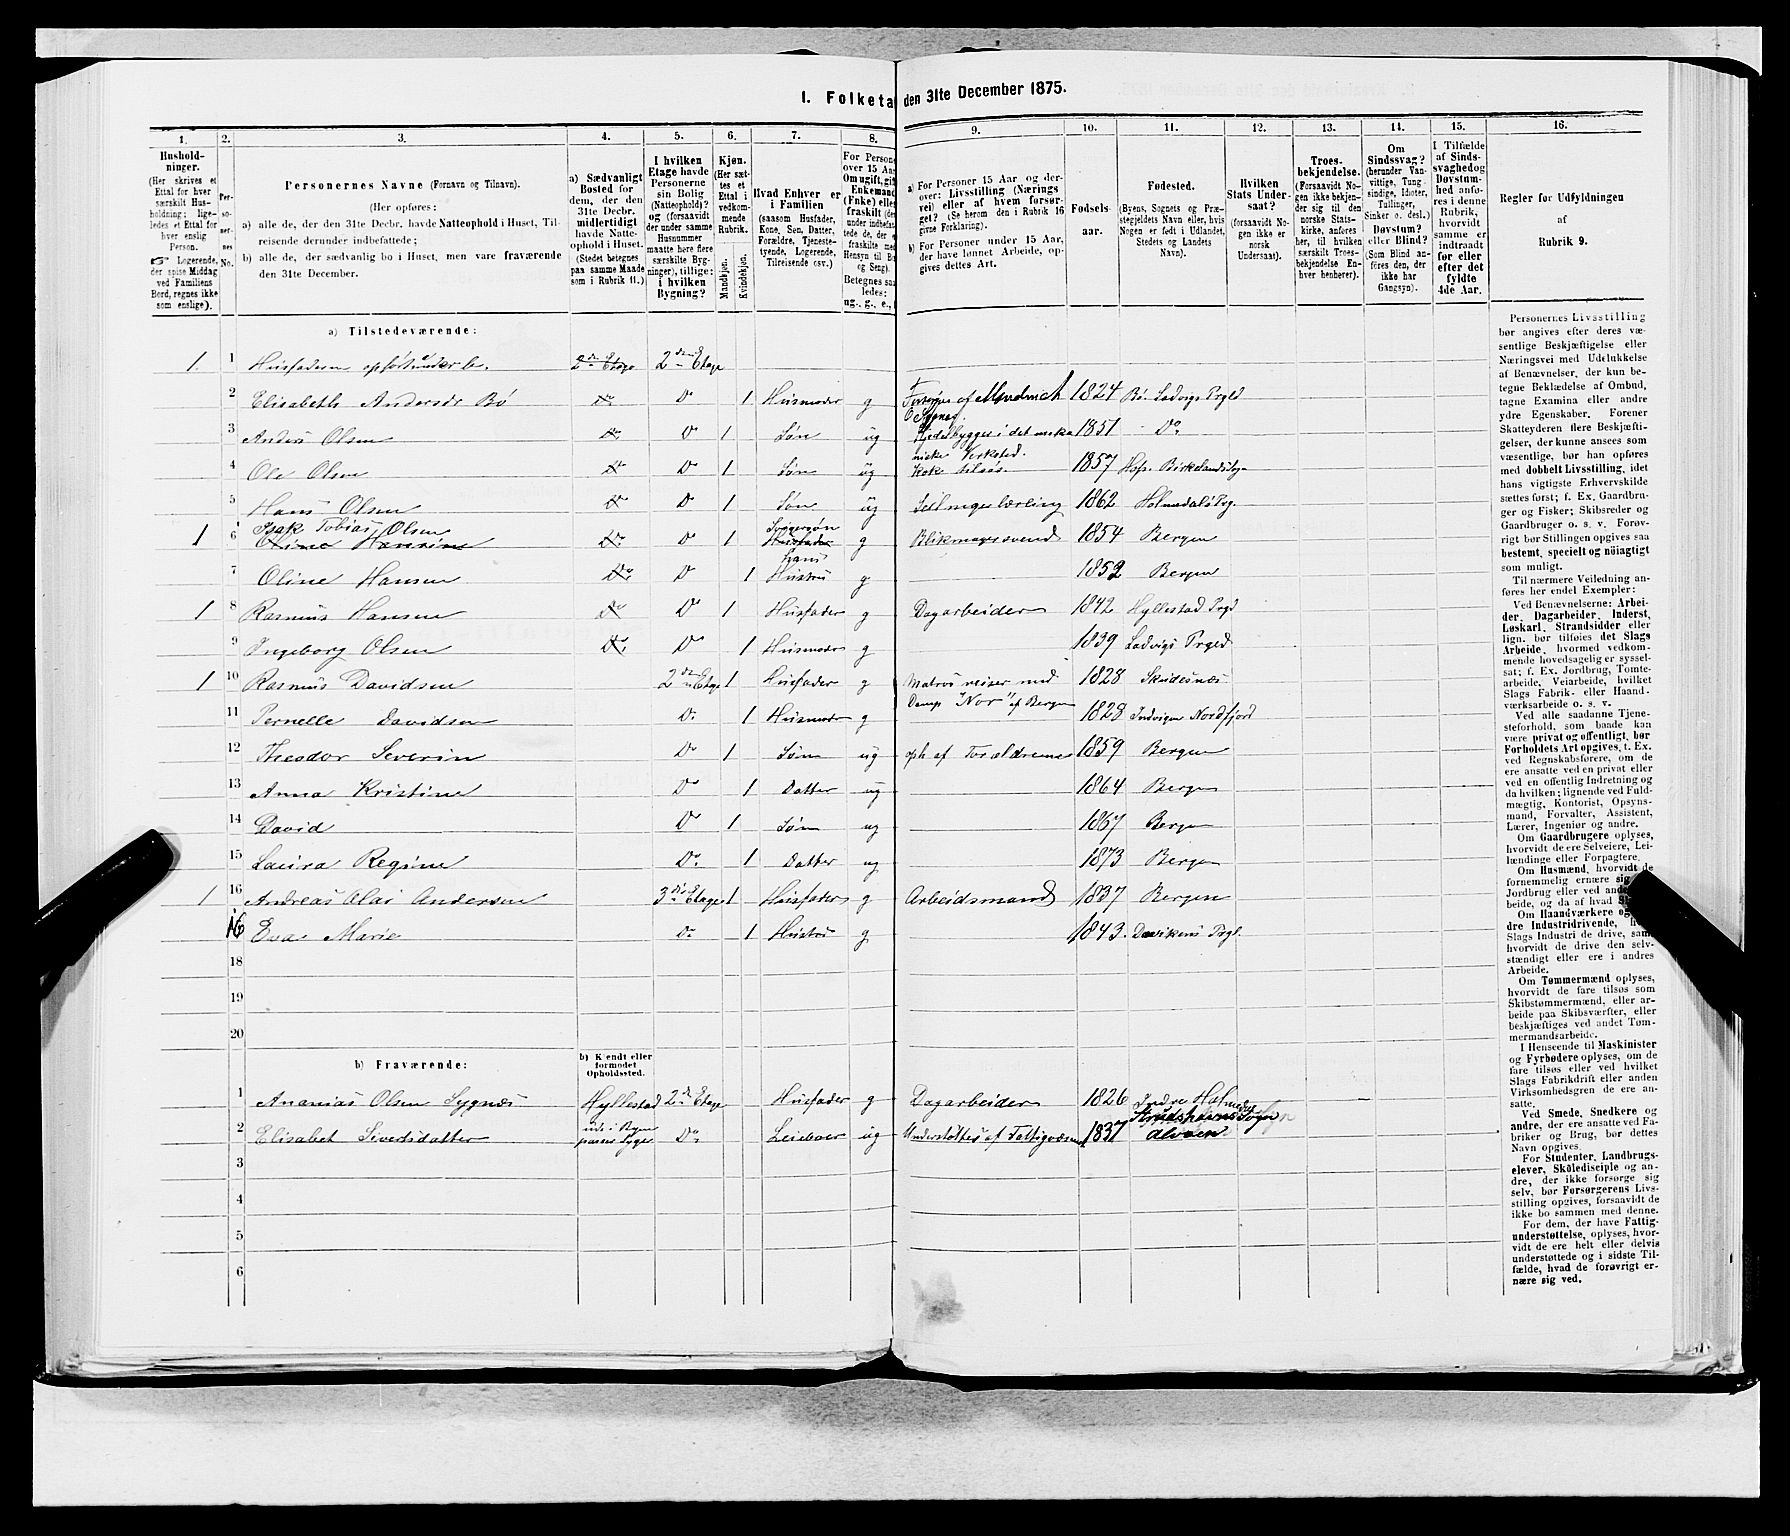 I. Folketa den 31te December 1875.
1. 2. 3. 4. 5. 6. 7. 8. 9. 10. 11. 12. 13. 14. 15. 16.
Hushold-
ninger.
(Her skrives et
Ettal for hver
særskilt Hus-
holdning; lige-
ledes et Ettal for
hver enslig
Person.
Logerende,
der spise Middag
ved Familiens
Bord, regnes ikke
som enslige).
Per-
so-
ner-
nes
No.
Personernes Navne (Fornavn og Tilnavn).
(Her opføres:
a) alle de, der den 31te Decbr. havde Natteophold i Huset, Til-
reisende derunder indbefattede;
b) alle de, der sædvanlig bo i Huset, men vare fraværende
den 31te December.
a) Sædvanligt
Bosted for
dem, der den
31te Decbr.
midlertidigt
havde Natte-
ophold i Huset.
(Stedet betegnes
paa samme Maade
som i Rubrik 11.)
I hvilken
Etage havde
Personerne
sin Bolig
(Natteophold)?
og (forsaavidt
der under samme
Husnummer
maatte høre flere
særskilte Byg-
ninger), tillige:
i hvilken
Bygning?
Kjøn.
(Her sæt-
tes et
Ettal i
vedkom-
mende
Rubrik.
Mandkjøn.
Kvindekjøn.
Hvad Enhver er
i Familien
(saasom Husfader,
Kone, Søn, Datter,
Forældre, Tjeneste-
tyende, Logerende,
Tilreisende osv.)
For Persone
over 15 Aar
Om ugift, gift
Enkemand
(Enke) eller
fraskilt (der
under indbefat-
tede de, der e
fraskilte med
Hensyn til Bo
og Seng).
Betegnes saa
ledes:
ug., g., e.,
a) For Personer 15 Aar og der-
over: Livsstilling (Nærings
vei) eller af hvem forsør-
get? (Se herom den i Rubrik 16
givne Forklaring).
b) For Personer under 15 Aar,
der have lønnet Arbeide, op-
gives dettes Art.
Fødsels-
aar.
Fødested.
(Byens, Sognets og Præ-
stegjeldets Navn eller, hvis
Nogen er født i Udlandet,
Stedets og Landets
Navn).
Hvilken
Stats Under-
saat?
(forsaavidt No-
gen ikke er
norsk
Undersaat).
Troes-
bekjendelse.
(Forsaavidt No-
gen ikke bekjen-
der sig til den
norske Stats-
kirke, anføres
her, til hvilken
særskilt Troes-
bekjendelse En-
hver henhører).
Om
Sindssvag?
(herunder Van-
vittige, Tung-
sindige, Idioter,
Tullinger,
Sinker o. desl.)
Døvstum?
eller Blind?
(Som Blind an-
føres den, der
ikke har
Gangsyn).
I Tilfælde
af Sinds-
svaghedog
Døvstum-
hed anfø-
res i denne
Rubrik,
hvorvidt
samme er
indtraadt
før eller
efter det
fyldte
4de Aar.
Regler for Udfyldningen
af
Rubrik 9.
a) Tilstedeværende:
1. 1 Husfaderen opført under b. 2den Etage 2den Etage
2 Elisabeth Andersdr Bø Do Do 1 Husmoder g 1824 Bø Ladvigs Prgld
3 Anders Olsen Do Do 1 Søn ug Kjedelbygger i det meka 1851 Do
niske Verksted.
4 Ole Olsen Do Do 1 Søn ug Kok tilsøs. 1857
5 Hans Olsen Do Do 1 Søn ug Seilmagerlærling 1862 Holmedals Prg.
Isak Tobias Olsen
1 6 Oline Hansen Do Do 1 Husfader g Blikmagersvend 1854 Bergen
hans
7 Oline Hansen Do Do 1 Hustru g 1852 Bergen
1 8 Rasmus Hansen Do Do 1 Husfader g Dagarbeider 1842 Hyllestad Prgd
9 Ingeborg Olsen Do Do 1 Husmoder g 1839 Ladvigs Prgld
1 10 Rasmus Davidsen 2den Etage 1 Husfader g Matros reiser med 1828 Skudesnæs
Damps "Nor" af Bergen
11 Pernelle Davidsen Do 1 Husmoder g 1828 Indvigen Nordfjord
12 Theodor Severin Do 1 Søn ug oph af Forældrene 1859 Bergen
13 Anna Kristine Do 1 Datter ug 1864 Bergen
14 David Do 1 Søn ug 1867 Bergen
15 Laura Regine Do 1 Datter ug 1873 Bergen
1 16 Andreas Olai Andersen 3die Etage 1 Husfader g Arbeidsmand 1837 Bergen
16 Eva Marie Do 1 Hustru g 1843. Davikens Prgl.
18
19
20
b) Fraværende:
b) Kjendt eller
formodet
Opholdssted.
1 Ananias Olsen Sygnæs Hyllestad 2den Etage Husfader g Dagarbeider 1826 Indre Holmedal
2 Elisabet Sivertsdatter Do Leieboer ug Understøttes af Fattigvæsenet 1837 Alvøen
3
4
5
6
Personernes Livsstilling
bør angives efter deres væ-
sentlige Beskjæftigelse eller
Næringsvei med Udelukkelse
af Benævnelser, der kun be-
tegne Beklædelse af Ombud,
tagne Examina eller andre
ydre Egenskaber. Forener
Skatteyderen flere Beskjæfti-
gelser, der kunne ansees som
væsentlige, bør han opføres
med dobbelt Livsstilling, idet
hans vigtigste Erhvervskilde
sættes først; f. Ex. Gaardbru-
ger og Fisker; Skibsreder og
Gaardbruger o. s. v. Forøv-
rigt bør Stillingen opgives saa
bestemt, specielt og nøiagtigt
som muligt.
Til nærmere Veiledning an-
føres her endel Exempler:
Ved Benævnelserne: Arbei-
der, Dagarbeider, Inderst,
Løskarl, Strandsidder eller
lign. bør tilføies det Slags
Arbeide, hvormed vedkom-
mende hovedsagelig er syssel-
sat; f. Ex. Jordbrug, Tomte-
arbeide, Veiarbeide, hvilket
Slags Fabrik- eller Haand-
værksarbeide o. s. v.
Ved alle saadanne Tjene-
steforhold, som baade kan
være privat og offentlig, bør
Forholdets Art opgives, t. Ex.
ved Regnskabsførere, om de
ere ansatte ved en privat eller
ved en offentlig Indretning og
da hvilken; lignende ved Fuld-
mægtig, Kontorist, Opsyns-
mand, Forvalter, Assistent,
Lærer, Ingeniør og andre.
Om Gaardbrugere oplyses,
hvorvidt de ere Selveiere, Lei-
lændinge eller Forpagtere.
Om Husmænd, hvorvidt de
fornemmelig ernære sig
Jordbrug eller ved and
beide, og da af hvad S
Om Haandværkere og
dre Industridrivende, h
Slags Industri de drive, sam
hvorvidt de drive den selv-
stændigt eller ere i andres
Arbeide.
Om Tømmermænd oplyses,
hvorvidt de fare tilsøs som
Skibstømmermænd, eller ar-
beide paa Skibsværfter, eller
beskjæftiges ved andet Tøm-
mermandsarbeide.
I Henseende til Maskinister
og Fyrbødere oplyses, om de
fare tilsøs eller ved hvilket
Slags Fabrikdrift eller anden
Virksomhedsgren de ere an-
satte.
Ved Smede, Snedkere og
andre, der ere ansatte ved Fa-
briker og Brug, bør dettes
Navn opgives.
For Studenter, Landbrugs-
elever, Skoledisciple og an-
dre, der ikke forsørge sig
selv, bør Forsørgerens Livs-
stilling opgives, forsaavidt de
ikke bo sammen med denne.
For dem, der have Fattig-
understøttelse, oplyses, hvor-
vidt de ere helt eller delvis
understøttede og i sidste Til-
fælde, hvad de forøvrigt er-
nære sig ved.